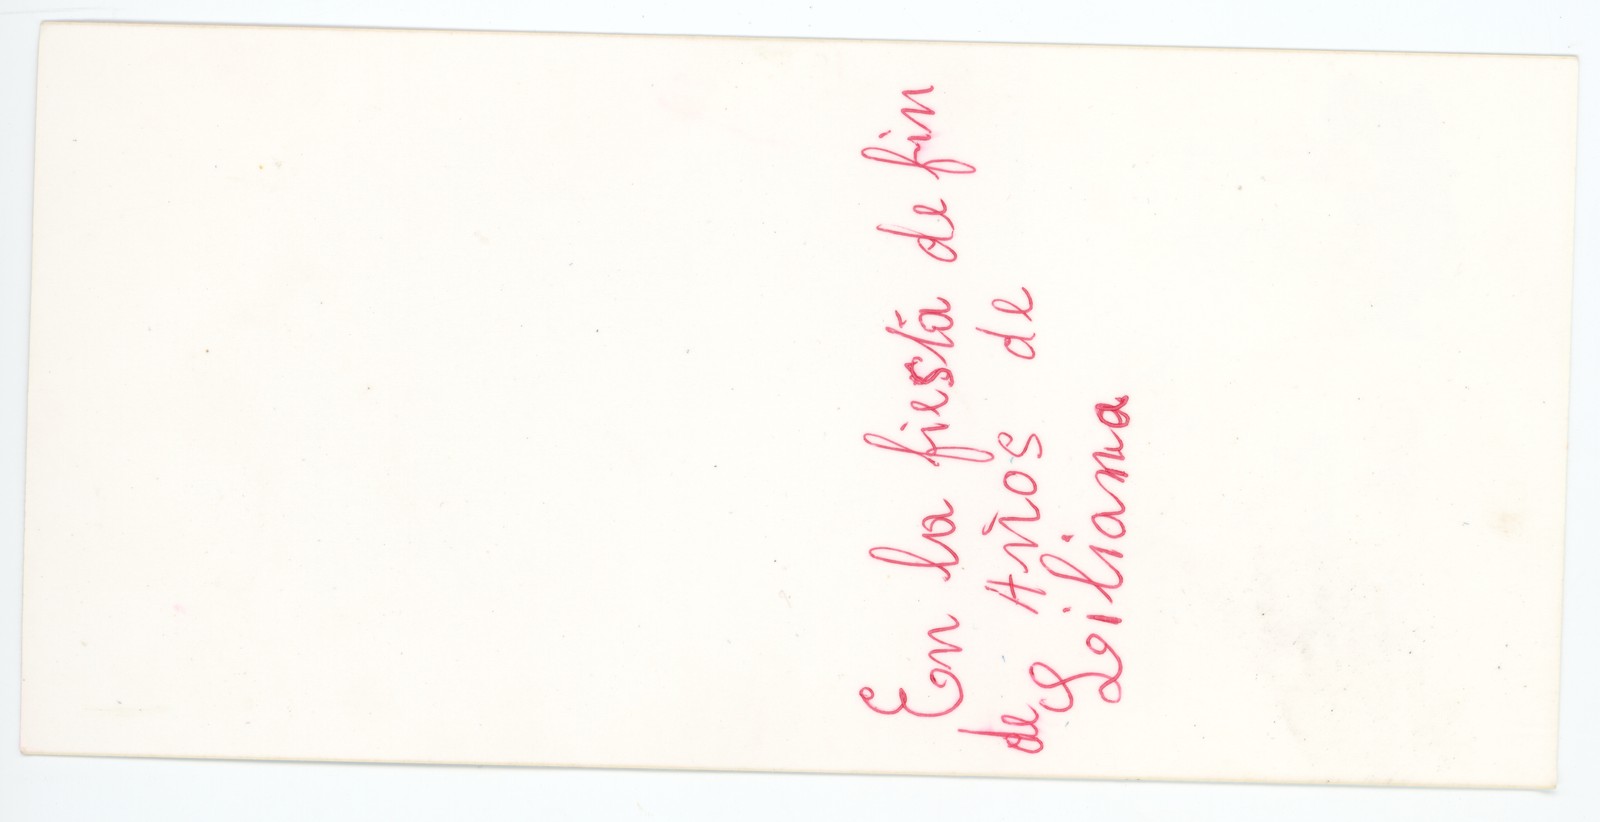 En la fiesta de fin
de Años de
Liliana